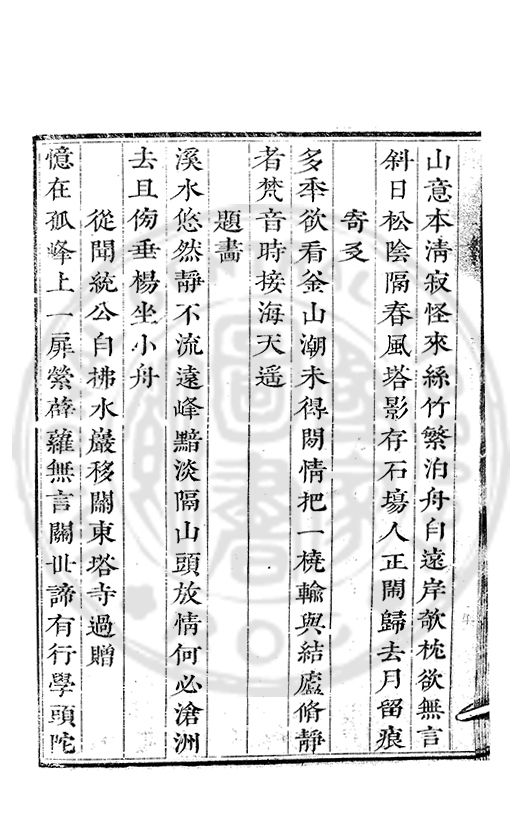 山意本清寂怪來絲竹繁泊舟自遠岸欹枕欲無言
斜日松陰隔春風塔影存石塲人正閙歸去月留痕
寄
多年欲看釜山潮未得閒情把一橈輸與結廬脩靜
者梵音時接海天遥
題畵
溪水悠然靜不流遠峰黯淡隔山頭放情何必滄洲
去且傍垂楊坐小舟
從聞統公自拂水巖移關東塔寺過贈
憶在孤峰上一扉縈薜蘿無言關世諦有行學頭陀